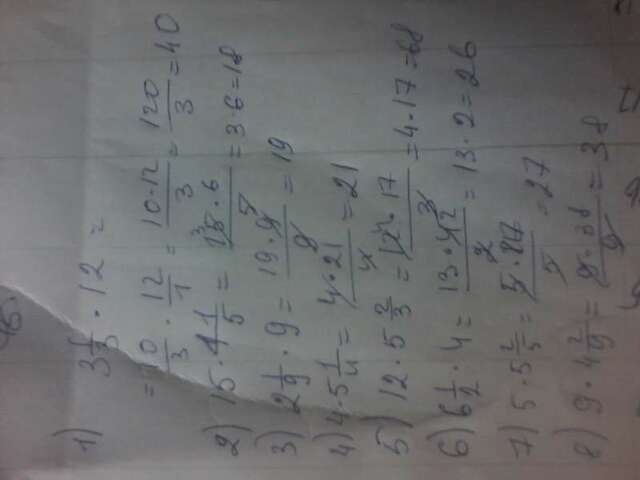 1) 3 1/3 · 12 =
= 10/3 · 12/1 = 10·12/3 = 120/3 = 40
2) 15 · 1 1/5 = 15·6/5 = 3·6=18
3) 2 1/9 · 9 = 19·9/9 = 19
4) 4·5 1/4 = 4·21/4 = 21
5) 12 · 5 2/3 = 12·17/3 = 4·17=68
6) 6 1/2 · 4 = 13·4/2 = 13·2=26
7) 5·5 2/5 = 5·27/5 = 27
8) 9·4 2/9 = 9·38/9 = 38